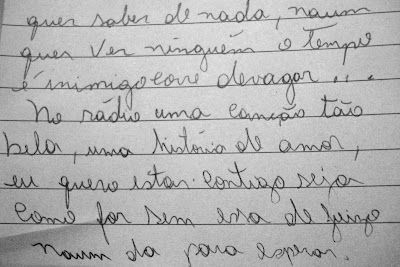 quer saber de nada, naum
quer ver ninguém o tempo
é inimigo core devagar...
No rádio uma canção tão
bela, uma história de amor,
eu quero estar contigo seja
como for sem essa de juizo
naum da para esperar.